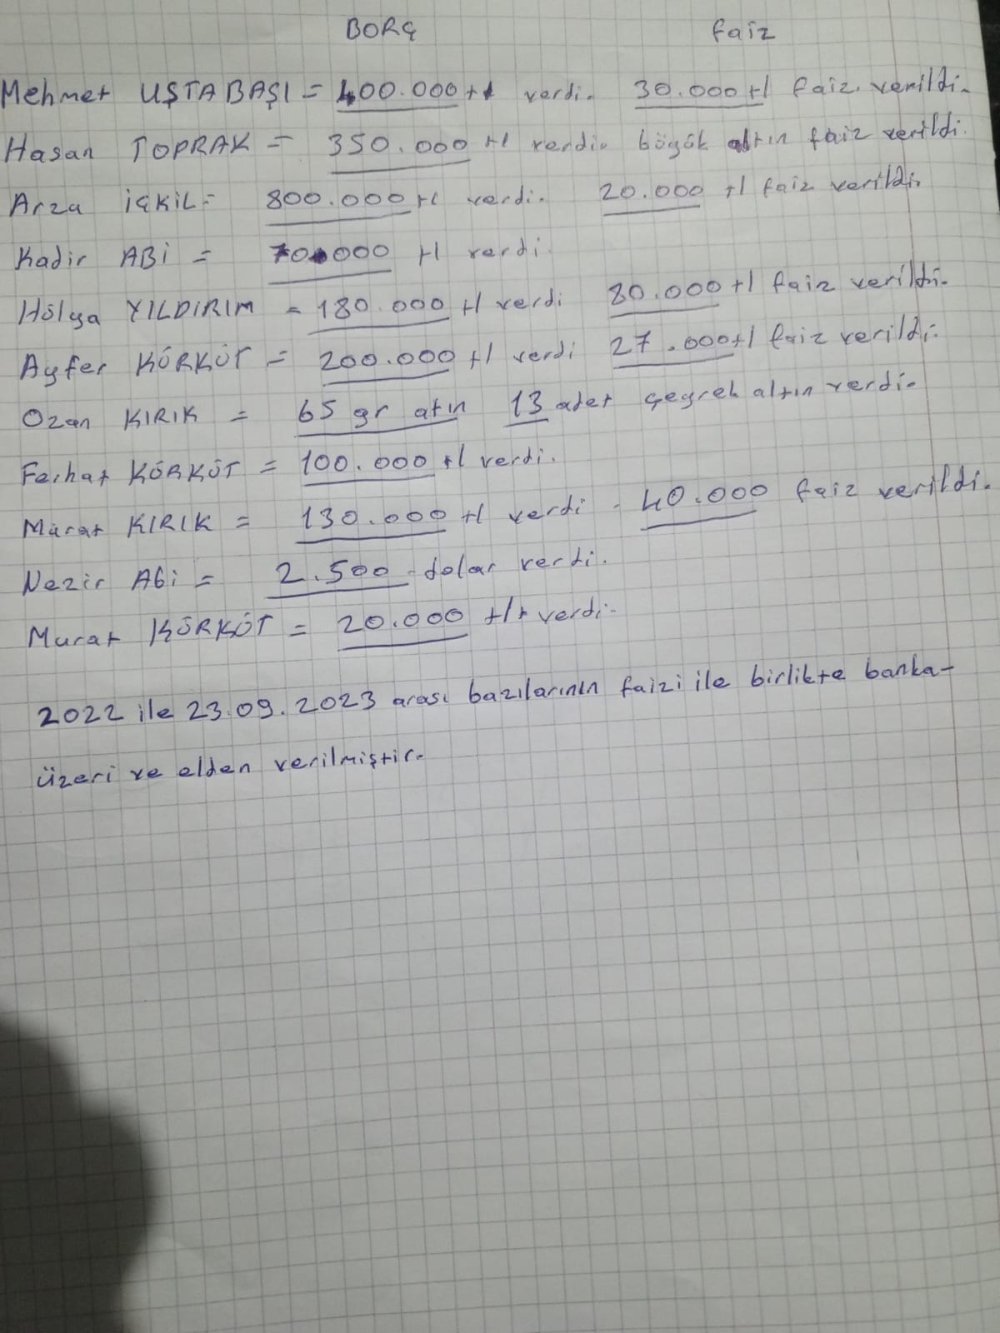 BORÇ faiz
Mehmet USTABAŞI = 400.000 tl verdi. 30.000 tl faiz verildi.
Hasan TOPRAK = 350.000 tl verdi. böyük altın faiz verildi.
Arza İÇKİL = 800.000 tl verdi. 20.000 tl faiz verildi.
Kadir ABİ = 70.000 tl verdi.
Hülya YILDIRIM = 180.000 tl verdi 80.000 tl faiz verildi.
Ayfer KÖRKÖT = 200.000 tl verdi 27.000 tl faiz verildi.
Ozan KIRIK = 65 gr atın 13 adet çeyrek altın verdi.
Ferhat KÖRKÖT = 100.000 tl verdi.
Murat KIRIK = 130.000 tl verdi. 40.000 faiz verildi.
Nezir Abi = 2.500 dolar verdi.
Murat KÖRKÖT = 20.000 tl verdi.
2022 ile 23.09.2023 arası bazılarının faizi ile birlikte banka-
üzeri ve elden verilmiştir.